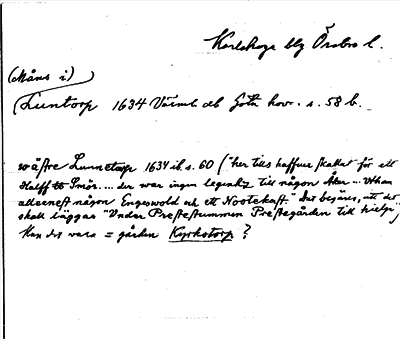 Karlskoga blg Örebro l.
(Måns i)
Luntorp 1634 Värml db Göta hovr. s. 58 b.
wästre Lunnetorp 1634 ib. s. 60 ("her tills haffuer skattet för ett
Halff tt Smör.... der war ingen till någon Åker ... Uthan
allenest någon Engeswold och ett Nootekast." Det begäres, att det
skall läggas "Under Prestestummen Prestegården till hielp",
Kan det vara = gården Kyrkotorp?